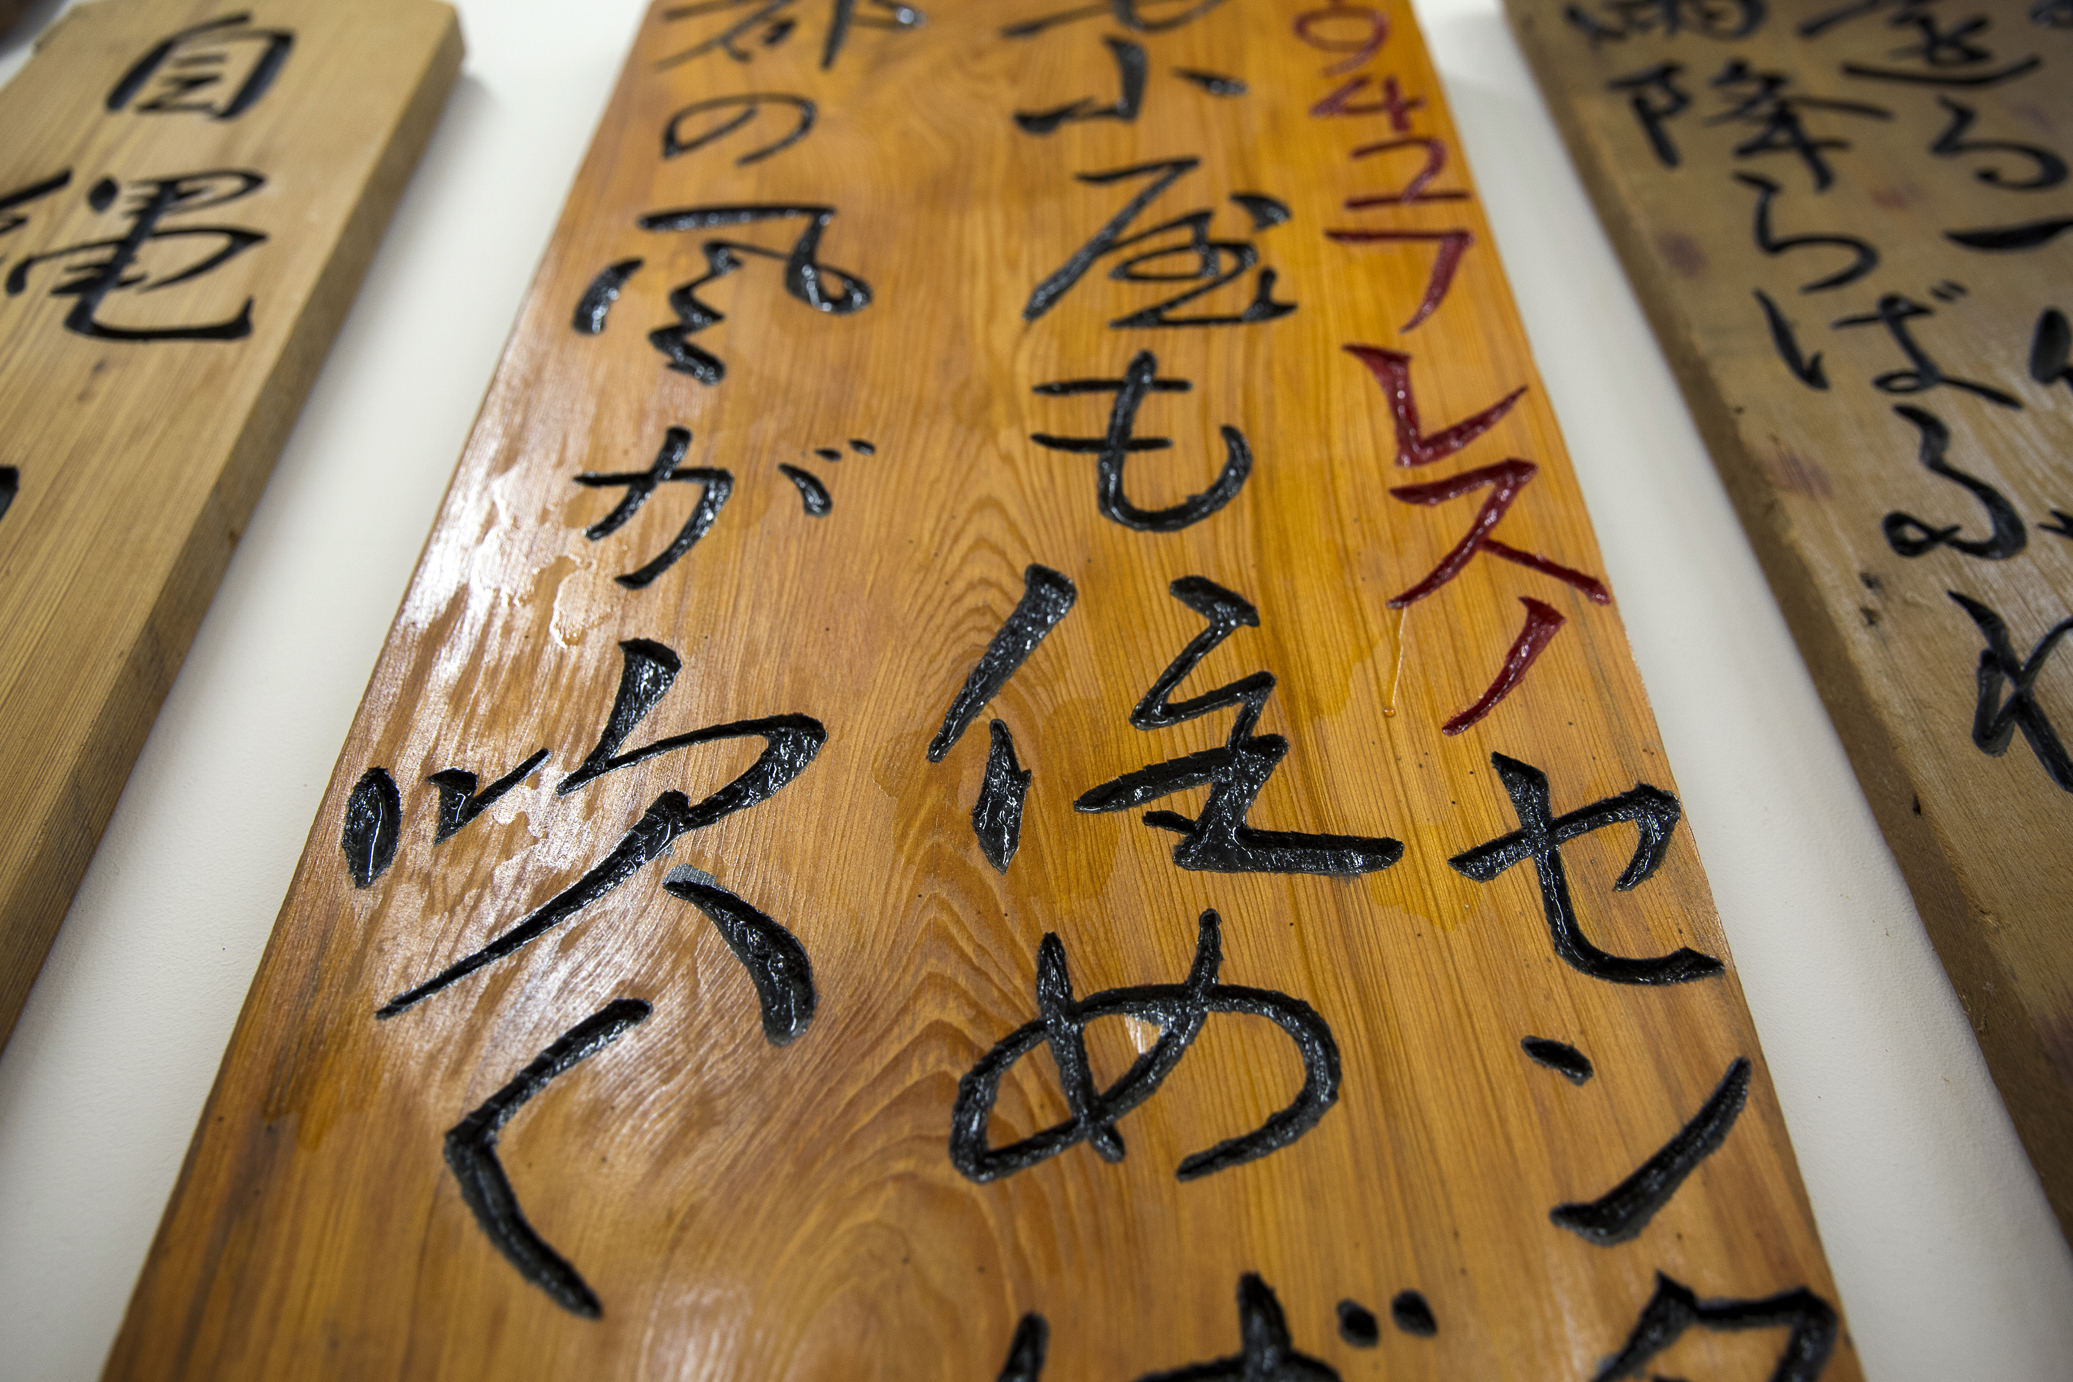 る一
雨降らばふれ
942フレスノセンタ
小屋も住めば
都の風が吹く
自縄